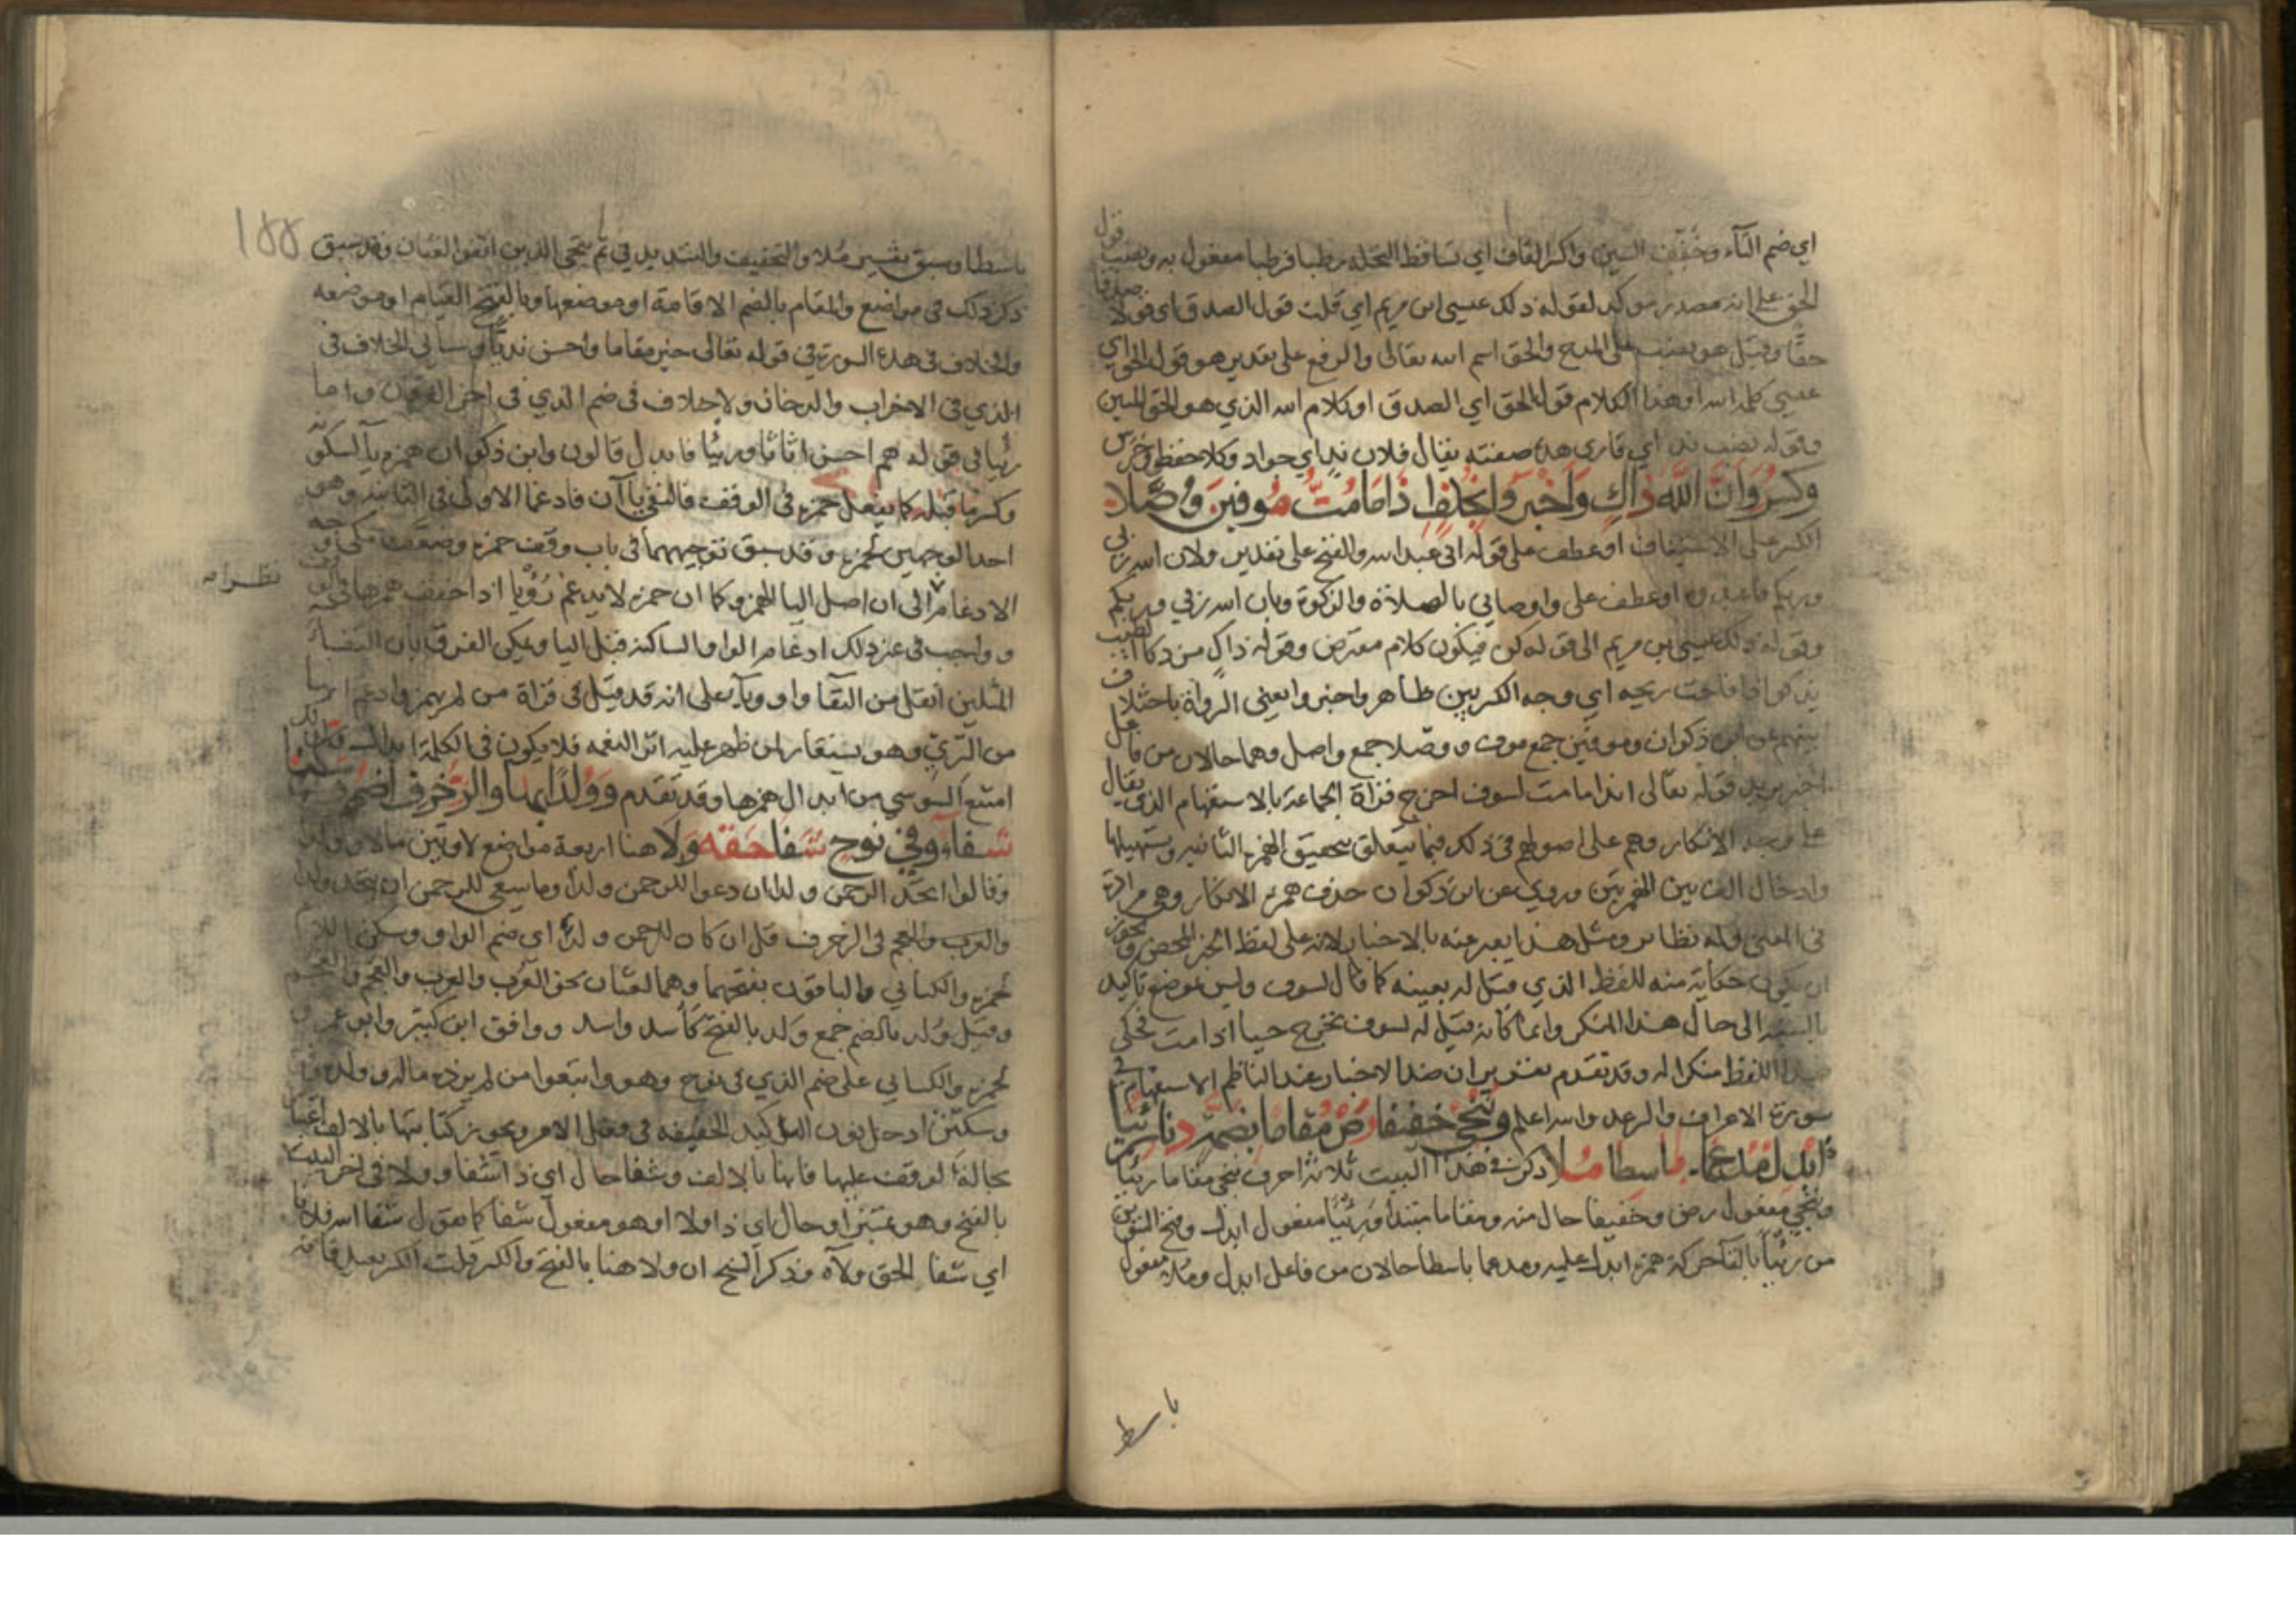 اي ضم التاء وخفف السين واكسر القاف اي تساقط النخلة رطبا فرطبا مفعول به ونصب قول
الحق على انه مصدر موكد لقوله ذلك عيسى ابن مريم اي قلت قول الصدق اي قولا صدقا
حقا وقيل هو نصب على المدح والحق اسم الله تعالى والرفع على تقدير هو قول الحق اي
عيسى كلمة الله او هذا الكلام قول الحق اي الصدق او كلام الله الذي هو الحق المبين
وقوله نصب ند اي قاري هذه صفته يقال فلان ند اي جواد وكلا حفظ وحرس
وكسر وان الله ذاك واخبروا بخلف اذا ما مت موفين وصلا
الكسر على الاستيناف او عطف على قوله اني عبد الله والفتح على تقدير ولان الله ربي
وربكم فاعبدوه او عطف على واوصاني بالصلاة والزكوة وبان الله ربي وربكم
وقوله ذلك عيسى بن مريم الى قوله كن فيكون كلام معترض وقوله ذاك من ذكا الطيب
يذكوا اذا فاحت ريحه اي وجه الكسر بين ظاهر واخبروا يعني الرواة باختلاف
بينهم عن ابن ذكوان وموفين جمع موف ووصلا جمع واصل وهما حالان من فاعل
اخبر يريد قوله تعالى ائذا ما مت لسوف اخرج قراة الجماعة بالاستفهام الذي يقال
على وجه الانكار وهم على اصولهم في ذلك فيما يتعلق بتحقيق الهمزة الثانية وتسهيلها
وادخال الف بين الهمزتين وروي عن ابن ذكوان حذف همزة الانكار وهي مرادة
في المعنى وله نظاير ومثل هذا يعبر عنه بالاخبار لانه على لفظ الخبر المحض ويجوز
ان يكون حكاية منه للفظ الذي قيل له بعينه كما قال لسوف وليس موضع تاكيد
بالنسبة الى حال هذا المنكر وانما كانه قيل له لسوف تخرج حيا اذا مت فحكى
هذا اللفظ منكرا له وقد تقدم تقرير ان ضد الاخبار عند الناظم الاستفهام في
سورة الاعراف والرعد والله اعلم وننجي خفيفا رض مقاما بضمه دنا رئيا
ابدل مدغما باسطا ملا ذكر في هذا البيت ثلاثة احرف ننجي مقاما رئيا
وننجي مفعول رض وخفيفا حال منه ومقاما مبتدا ورئيا مفعول ابدل وفتح التنوين
من رئيا بالقا حركة همزة ابدل عليه ومدغما باسطا حالان من فاعل ابدل وملا مفعول
باسط
١٥٥
باسطا وسبق تفسير ملا والتخفيف والتشديد في ثم ننجي الذين اتقوا لغتان وقد سبق
ذكر ذلك في مواضع والمقام بالضم الاقامة او موضعها وبالفتح القيام او موضعه
والخلاف في هذه السورة في قوله تعالى خير مقاما واحسن نديا وسياتي الخلاف في
الذي في الاحزاب والدخان ولا خلاف في ضم الذي في اخر الفرقان واما
رئيا في قوله هم احسن اثاثا ورئيا فابدل قالون وابن ذكوان همزه ياء لسكونه
وكسر ما قبله كما يفعل حمزة في الوقف فالتقى ياآن فادغما الاولى في الثانية وهو
احد الوجهين لحمزة وقد سبق توجيههما في باب وقف حمزة وضعف مكي وجه
الادغام الى ان اصل اليا الهمز وكما ان حمزة لا يدغم رؤيا اذا خفف همزها في الوقف
وواجب في غير ذلك ادغام الواو الساكنة قبل اليا ويمكن الفرق بان التقا
المثلين اثقل من التقا واو ويآ على انه قد قيل في قراة من لم يهمز وادغم انها
من الري وهو يستعار لمن ظهر عليه اثر النعمة فلا يكون في الكلمة ابدال
امتنع السوسي من ابدال همزها وقد تقدم وولدا بها والزخرف اضمم وسكنا
شفاء وفي نوح شفا حقه ولا هنا اربعة مواضع لاوتين مالا وولدا
وقالوا اتخذ الرحمن ولدا ان دعوا للرحمن ولدا وما ينبغي للرحمن ان يتخذ ولدا
والعرب والعجم في الزخرف قل ان كان للرحمن ولد اي ضم الواو وسكن اللام
لحمزة والكسائي والباقون بفتحهما وهما لغتان نحو العرب والعرب والعجم والعجم
وقيل ولد بالضم جمع ولد بالفتح كأسد واسد ووافق ابن كثير وابو عمرو
لحمزة والكسائي على ضم الذي في نوح وهو واتبعوا من لم يزده ماله وولده
وسكنن ادخل نون التوكيد الخفيفة في فعل الامر ويجوز كتابتها بالالف
بحالة الوقف عليها فانها بالالف وشفا حال اي ذا شفا وولا في اخر البيت
بالفتح وهو تمييز او حال اي ذا ولا او هو مفعول شفا كما تقول شفا الله فلانا
اي شفا الحق ولآه وذكر الشيخ ان ولا هنا بالفتح والكسر قلت الكسر بعيد فانه
نظرامه